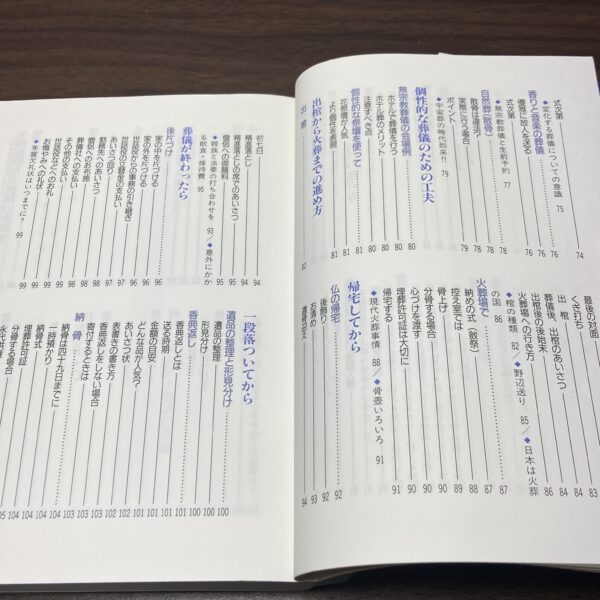 式次第 74
◆変化する葬儀についての意識 75
香りと音楽の葬儀 76
優雅に故人を送る 76
式次第
◆無宗教葬儀と生前予約 77
自然葬(散骨) 78
散骨は違法? 78
実際に行う場合 79
ポイント 79
◆宇宙葬の時代到来!! 79
個性的な葬儀のための工夫
無宗教葬儀の会場例 80
ホテルで葬儀を行う 80
ホテル葬のメリット 80
注意すべき点 80
個性的な祭壇を使って 81
花祭壇が人気 81
より個性を表現 81
出棺から火葬までの進め方
出棺 82
最後の対面 83
くぎ打ち
出棺 84
葬儀後、出棺のあいさつ 84
出棺後の後始末 84
火葬場への行き方 86
◆棺の種類 82/◆野辺送り 85/◆日本は火葬
の国 86
火葬場で 87
納めの式(敬祭) 87
控え室では 88
心づけを渡す 88
骨上げ 89
分骨する場合 89
帰宅する 90
埋葬許可証は大切に 91
◆現代火葬事情 88/◆骨壺いろいろ 91
帰宅してから
仏の帰宅 92
後飾り 92
お清め 93
遺骨迎え 94
初七日 94
精進落とし 94
精進落としの席でのあいさつ 94
僧侶への御膳料 95
◆親族と法要の打ち合わせを 93/◆意外にかか
る飲食・接待費 95
葬儀が終わったら
後片づけ 96
家の中を片づける 96
家の外を片づける 96
世話役からの事務の引き継ぎ 96
世話役の立替金の支払い
あいさつ回り
勤務先へのあいさつ
僧侶へのお布施
葬儀社への支払い
その他の支払い
世話役などへのお礼 99
お悔やみへの礼状 99
◆年賀欠礼状はいつまでに? 99
一段落ついてから
遺品の整理と形見分け 100
遺品の整理 100
形見分け 100
香典返し 100
香典返しとは 100
送る時期 101
金額の目安 101
どんな品が人気? 101
あいさつ状 101
表書きの書き方 102
香典返しをしない場合 102
寄付するときは 103
納骨 103
納骨は四十九日までに 103
一時預かり 104
納骨式 104
埋葬許可証 104
分骨する場合 104
永代供養 105